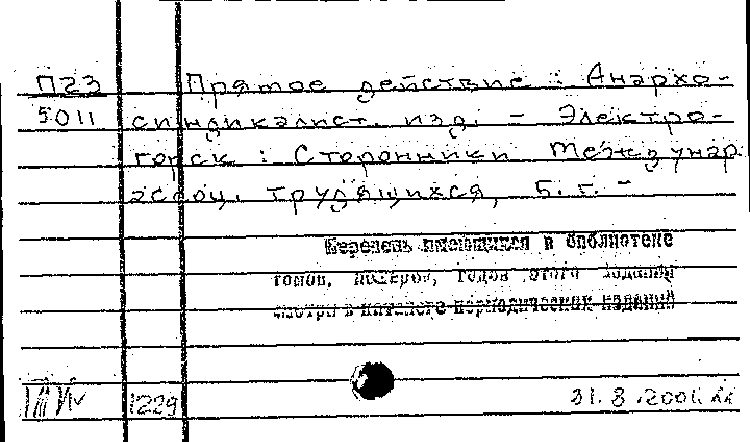 П23 Прямое действие : Анархо-
5011 синдикалист. изд. - Электро-
горск : Сторонники Междунар.
ассоц. трудящихся, Б. г. -
Перечень имеющихся в библиотеке
томов, номеров, годов этого издания
смотри в каталоге периодических изданий
1229 31.8.2001